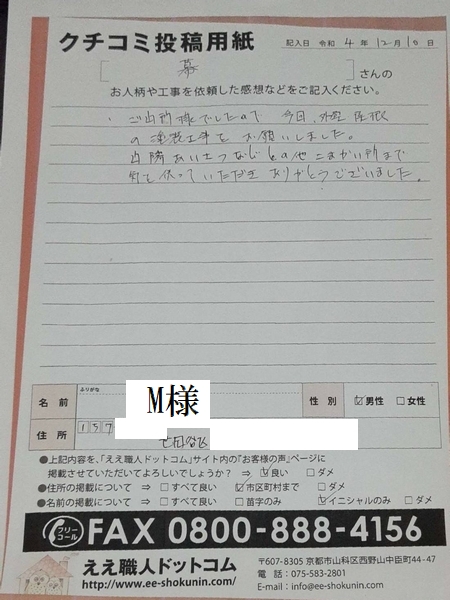 クチコミ投稿用紙
記入日 令和 4 年 12 月 10 日
[ 幕 ] さんの
お人柄や工事を依頼した感想などをご記入ください。
ご近所様でしたので 今回、外壁 屋根
の塗装工事を お願いしました。
近隣あいさつなど その他こまかい所まで
気を使っていただき ありがとうございました。
ふりがな
名前 M様 性別 ☑男性 □女性
住所 157
世田谷区
●上記内容を、「ええ職人ドットコム」サイト内の『お客様の声』ページに
掲載させていただいてよろしいでしょうか? ⇒ ☑良い □ダメ
●住所の掲載について ⇒ □すべて良い ☑市区町村まで □ダメ
●名前の掲載について ⇒ □すべて良い □苗字のみ ☑イニシャルのみ □ダメ
フリーコール FAX 0800-888-4156
ええ職人ドットコム
http://www.ee-shokunin.com/
〒607-8305 京都市山科区西野山中臣町44-47
電話：075-583-2801
E-mail：info@ee-shokunin.com